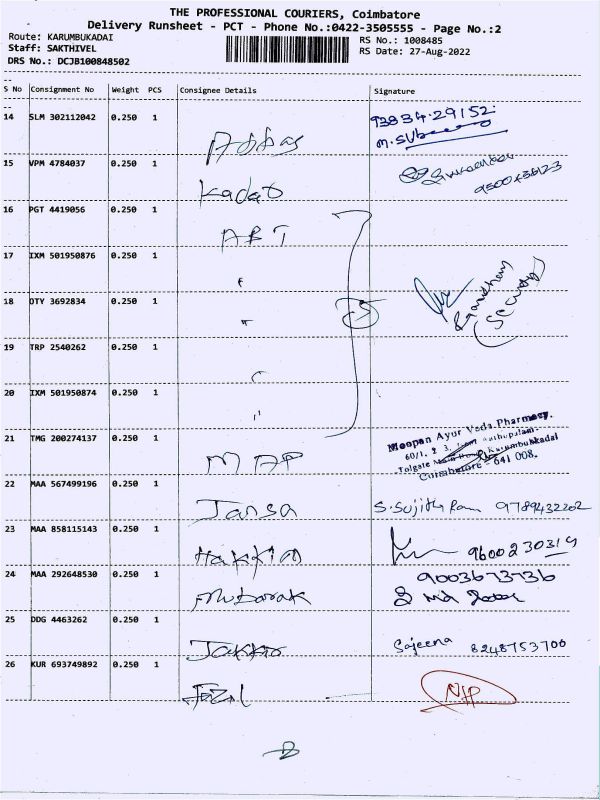 THE PROFESSIONAL COURIERS, Coimbatore
Delivery Runsheet - PCT - Phone No.:0422-3505555 - Page No.:2
Route: KARUMBUKADAI
RS No.: 1008485
Staff: SAKTHIVEL
RS Date: 27-Aug-2022
DRS No.: DCJB100848502
S No Consignment No Weight PCS Consignee Details Signature
14 SLM 302112042 0.250 1 Abbas 93834.29152
15 VPM 4784037 0.250 1 Kadar
16 PGT 4419056 0.250 1 ABT
17 IXM 501950876 0.250 1 "
18 OTY 3692834 0.250 1 " 5
19 TRP 2540262 0.250 1
20 IXM 501950874 0.250 1 "
21 TMG 200274137 0.250 1 MAP
Moopan Ayur Veda Pharmacy.
60/1, 2 3,
Tolgate Main Road Karumbukkadai
Coimbatore - 641 008.
22 MAA 567499196 0.250 1 Jansa S.Sujith Ram 9789432202
23 MAA 858115143 0.250 1 Hakkim 9600230319
24 MAA 292648530 0.250 1 Mubarak 9003673736
25 DDG 4463262 0.250 1 Sajeena 8248753700
26 KUR 693749892 0.250 1 Fazil N/P